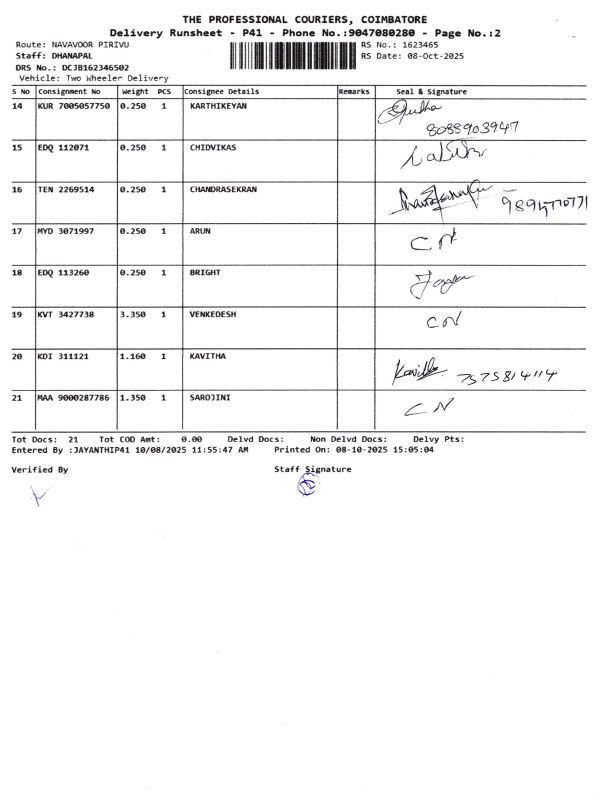 THE PROFESSIONAL COURIERS, COIMBATORE
Delivery Runsheet - P41 - Phone No.:9047080280 - Page No.:2
Route: NAVAVOOR PIRIVU RS No.: 1623465
Staff: DHANAPAL RS Date: 08-Oct-2025
DRS No.: DCJB162346502
Vehicle: Two Wheeler Delivery
S No Consignment No Weight PCS Consignee Details Remarks Seal & Signature
14 KUR 7005057750 0.250 1 KARTHIKEYAN
8088903947
15 EDQ 112071 0.250 1 CHIDVIKAS
16 TEN 2269514 0.250 1 CHANDRASEKRAN
17 MYD 3071997 0.250 1 ARUN CN
18 EDQ 113260 0.250 1 BRIGHT
19 KVT 3427738 3.350 1 VENKEDESH CN
20 KDI 311121 1.160 1 KAVITHA Kavitha 7575814114
21 MAA 9000287786 1.350 1 SAROJINI CN
Tot Docs: 21 Tot COD Amt: 0.00 Delvd Docs: Non Delvd Docs: Delvy Pts:
Entered By :JAYANTHIP41 10/08/2025 11:55:47 AM Printed On: 08-10-2025 15:05:04
Verified By Staff Signature